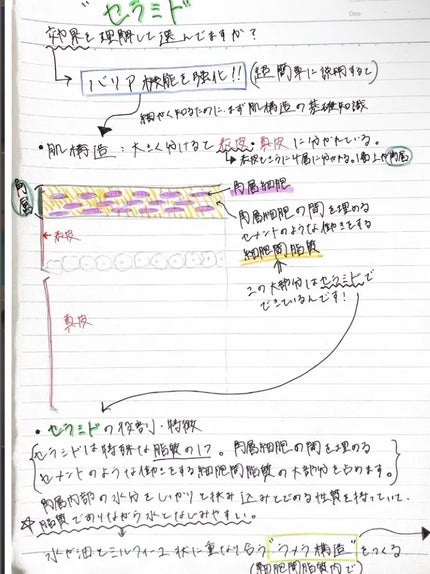 "セラミド"
効果を理解して選んでますか？
バリア機能を強化!! (超簡単に説明すると)
細かく知るために、まず肌構造の基礎知識
・肌構造：大きく分けると表皮・真皮に分かれている。
表皮はさらに4層に分かれる。1番上が角層
角層
角層細胞
角層細胞の間を埋める
セメントのような働きをする
細胞間脂質
表皮
この大部分はセラミドで
できているんです！
真皮
・セラミドの役割・特徴
セラミドは特殊な脂質の1つ。角層細胞の間を埋める
セメントのような働きをする細胞間脂質の大部分を占めます。
角層内部の水分をしっかりと挟み込みとどめる性質を持っていて、
脂質でありながら水となじみやすい。
水が油とミルフィーユ状に重なり合う"ラメラ構造"をつくる
(細胞間脂質内で)